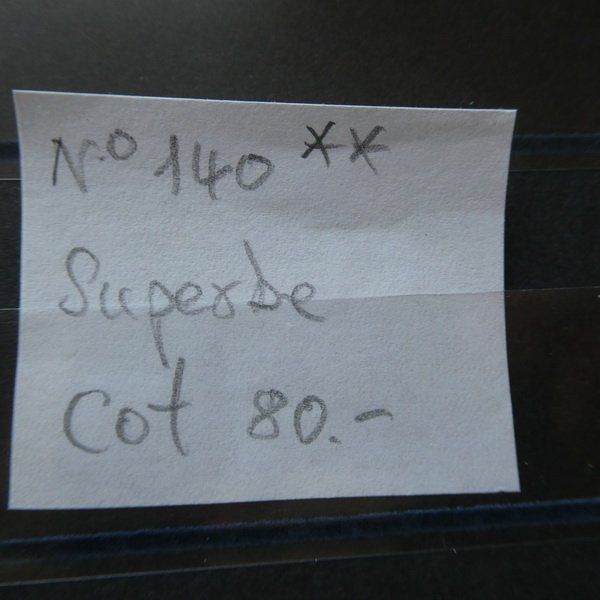 N.º 140 **
Superbe
Cot 80.-